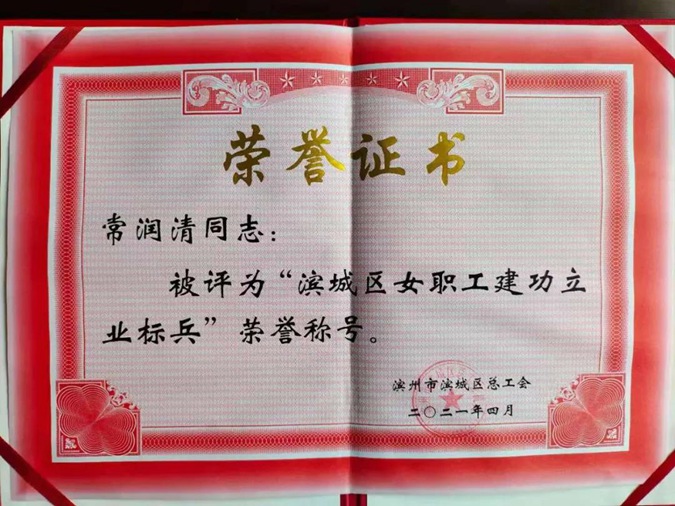 荣誉证书
常润清同志：
被评为“滨城区女职工建功立
业标兵”荣誉称号。
滨州市滨城区总工会
二〇二一年四月